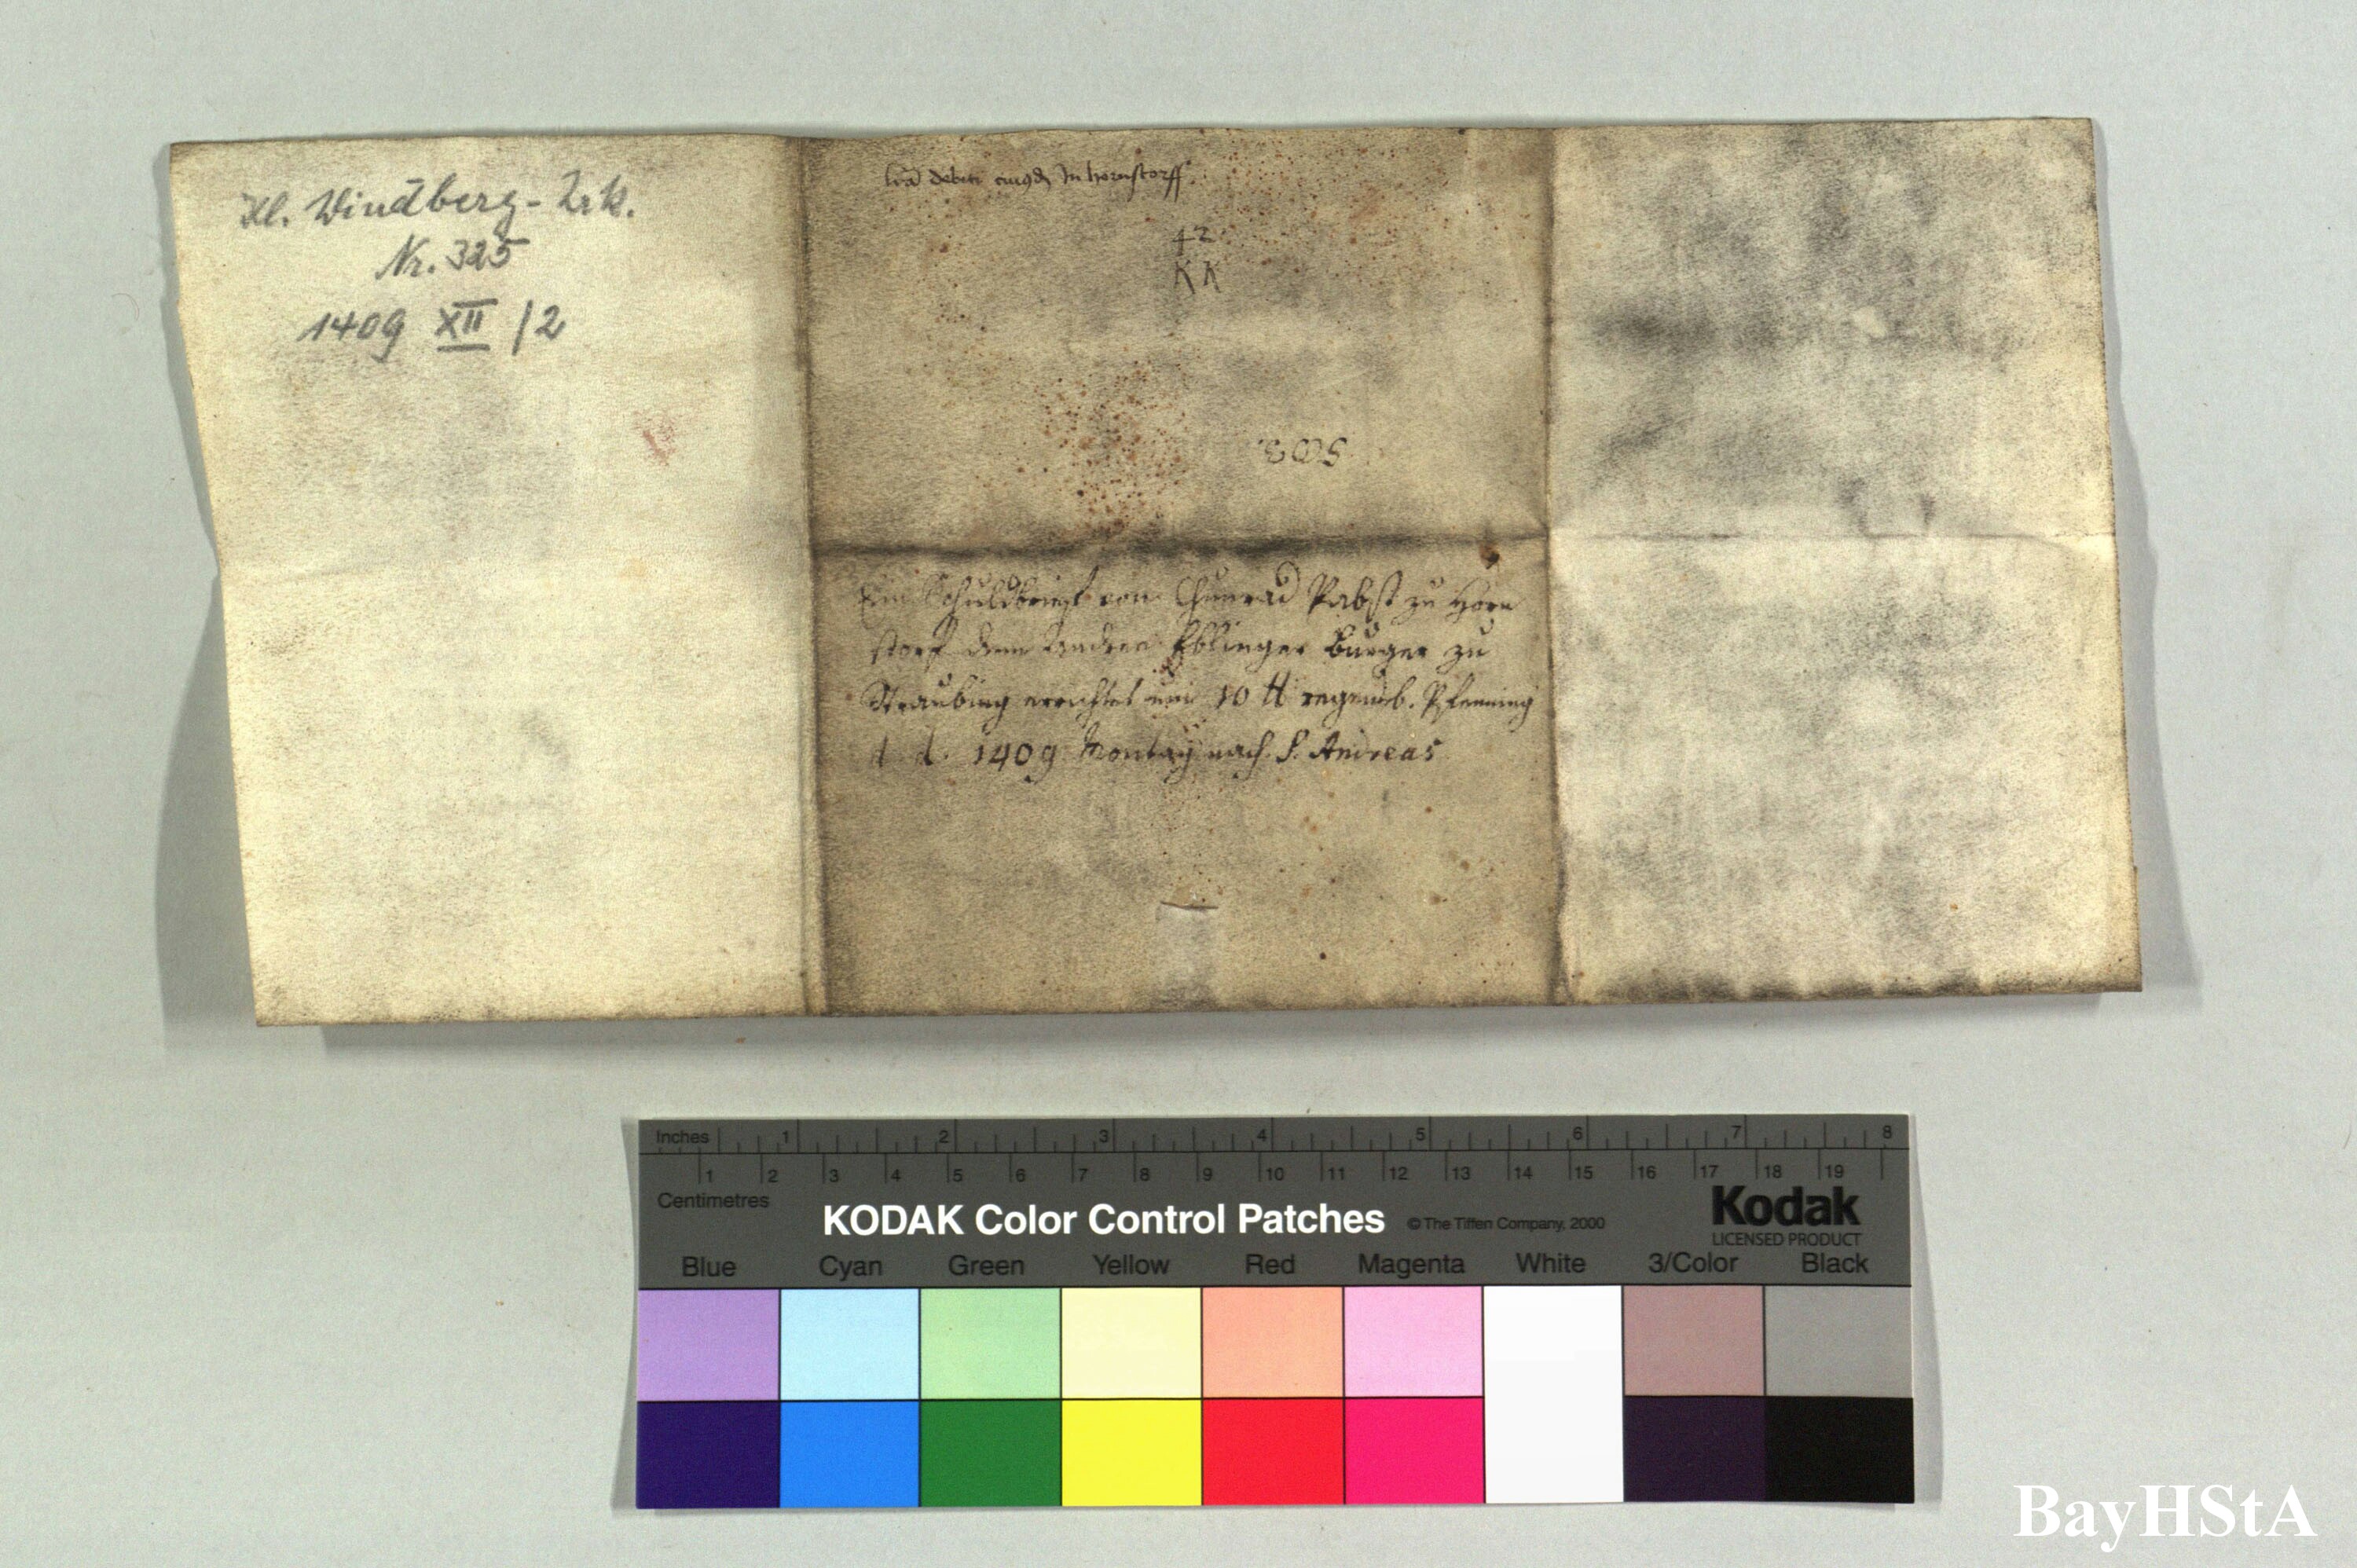 Kl. Windberg-Urk.
Nr. 325
1409 XII /2
lra debiti in hornstorff
42
KK
503.
Ein Schuldbrieff von Chunrad Pabst zu Horn
storf dem Andree Eblinger Burger zu
Straubing errichtet um 10 ℔ regensb. Pfenning
d. d. 1409 Montag nach S. Andreas
Inches 1 2 3 4 5 6 7 8
1 2 3 4 5 6 7 8 9 10 11 12 13 14 15 16 17 18 19
Centimetres
KODAK Color Control Patches © The Tiffen Company, 2000
Kodak
LICENSED PRODUCT
Blue Cyan Green Yellow Red Magenta White 3/Color Black
BayHStA